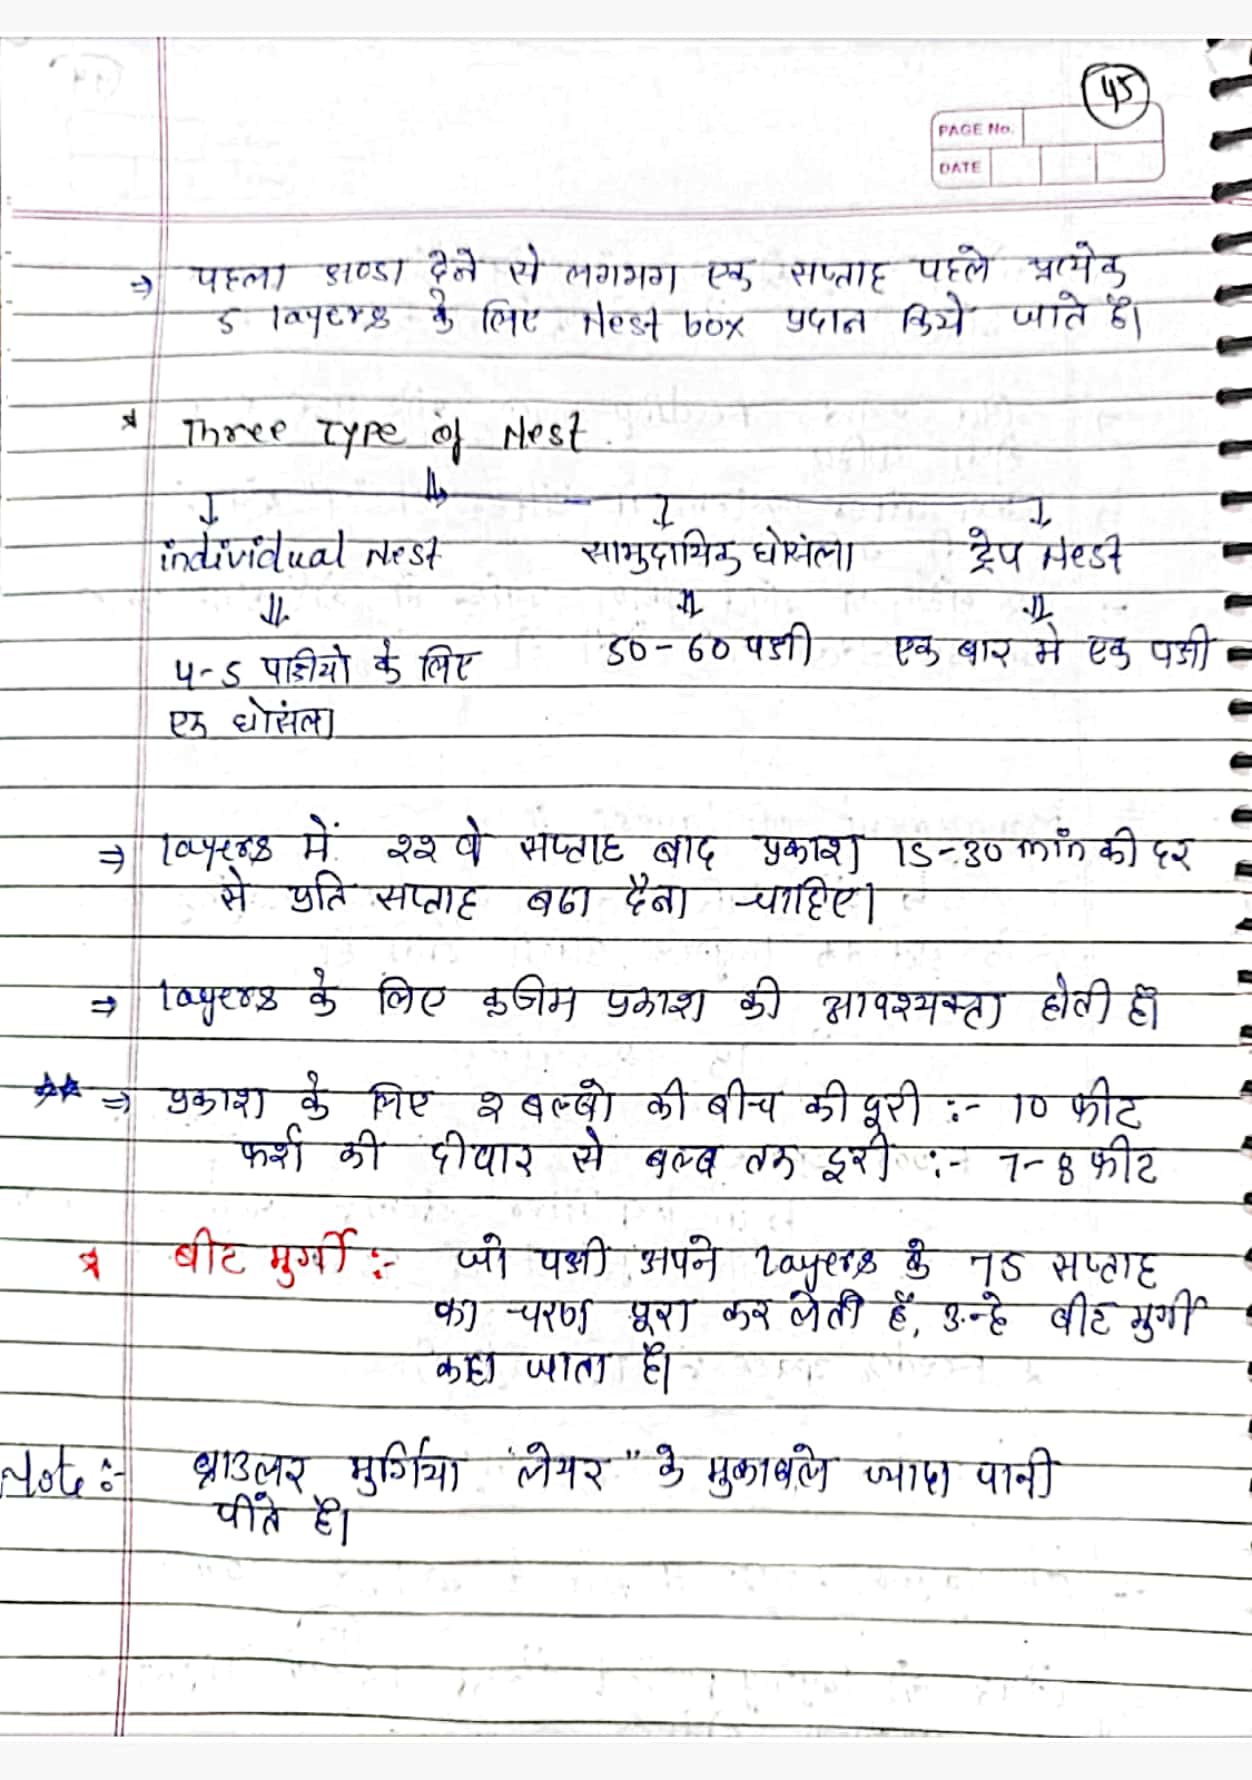 45
PAGE No.
DATE
⇒ पहला अण्डा देने से लगभग एक सप्ताह पहले प्रत्येक
5 layers के लिए Nest box प्रदान किये जाते है।
* Three Type of Nest.
individual Nest सामुदायिक घोसंला ट्रेप Nest
50-60 पक्षी एक बार मे एक पक्षी
4-5 पक्षीयो के लिए
एक घोसंला
⇒ layers में 22 वे सप्ताह बाद प्रकाश 15-30 min की दर
से प्रति सप्ताह बढा देना चाहिए।
⇒ layers के लिए कृत्रिम प्रकाश की आवश्यक्ता होती है।
** ⇒ प्रकाश के लिए 2 बल्बो की बीच की दूरी :- 10 फीट
फर्श की दीवार से बल्ब तक दूरी :- 7-8 फीट
* बीट मुर्गी :- जो पक्षी अपने layers के 75 सप्ताह
का चरण पूरा कर लेती हैं, उन्हे बीट मुर्गी
कहा जाता है।
Note :- ब्राउलर मुर्गिया "लेयर" के मुकाबले ज्यादा पानी
पीते है।